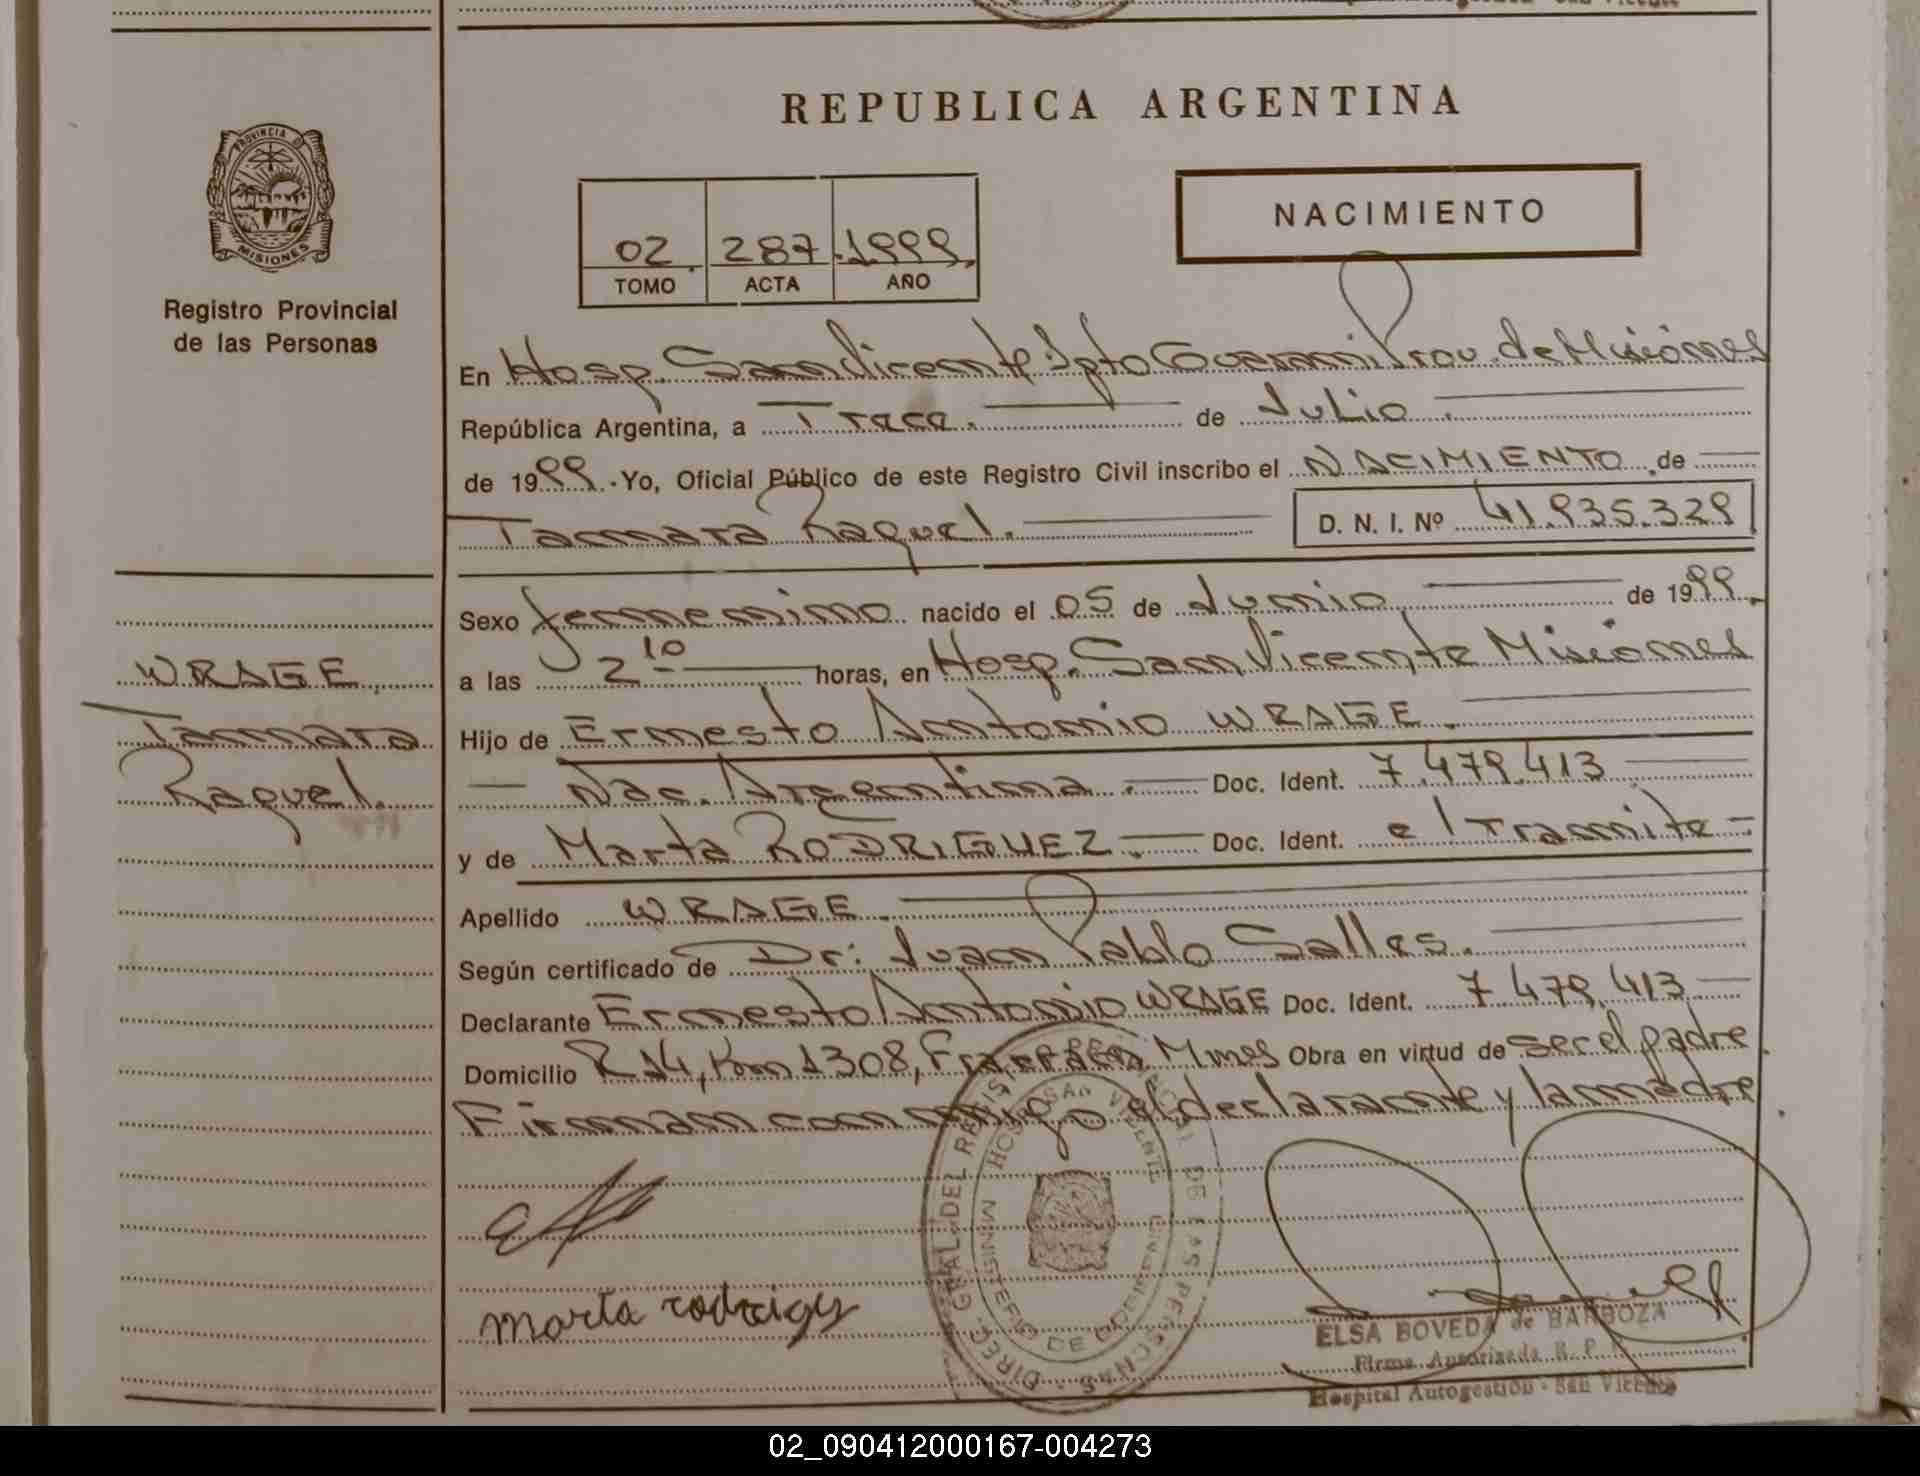 REPUBLICA ARGENTINA
PROVINCIA D
MISIONES
Registro Provincial
de las Personas
02. 287 .1999.
TOMO ACTA AÑO
NACIMIENTO
En Hosp. San Vicente Dpto Guarani Prov. de Misiones
República Argentina, a Trece. de Julio.
de 1999. Yo, Oficial Público de este Registro Civil inscribo el NACIMIENTO de
Tamara Raquel. D. N. I. Nº 41.935.329
WRAGE,
Tamara
Raquel.
Sexo femenino nacido el 05 de Junio de 1999.
a las 2 10 horas, en Hosp. San Vicente Misiones
Hijo de Ernesto Antonio WRAGE.
Nac. Argentina. Doc. Ident. 7.479.413
y de Marta RODRIGUEZ. Doc. Ident. el tramite
Apellido WRAGE.
Según certificado de Dr: Juan Pablo Salles.
Declarante Ernesto Antonio WRAGE Doc. Ident. 7.479.413
Domicilio R 14, Km 1308, Fracran Mnes Obra en virtud de ser el padre.
Firman conmigo el declarante y la madre.
DIREC. GRAL. DEL REGIST PROVINCIAL DE LAS PERSONAS
HOSP SAN VICENTE
MINISTERIO DE GOBIERNO
marta rodrigz
ELSA BOVEDA de BARBOZA
Firma Autorizada R. P.
Hospital Autogestión - San Vicente
02_090412000167-004273